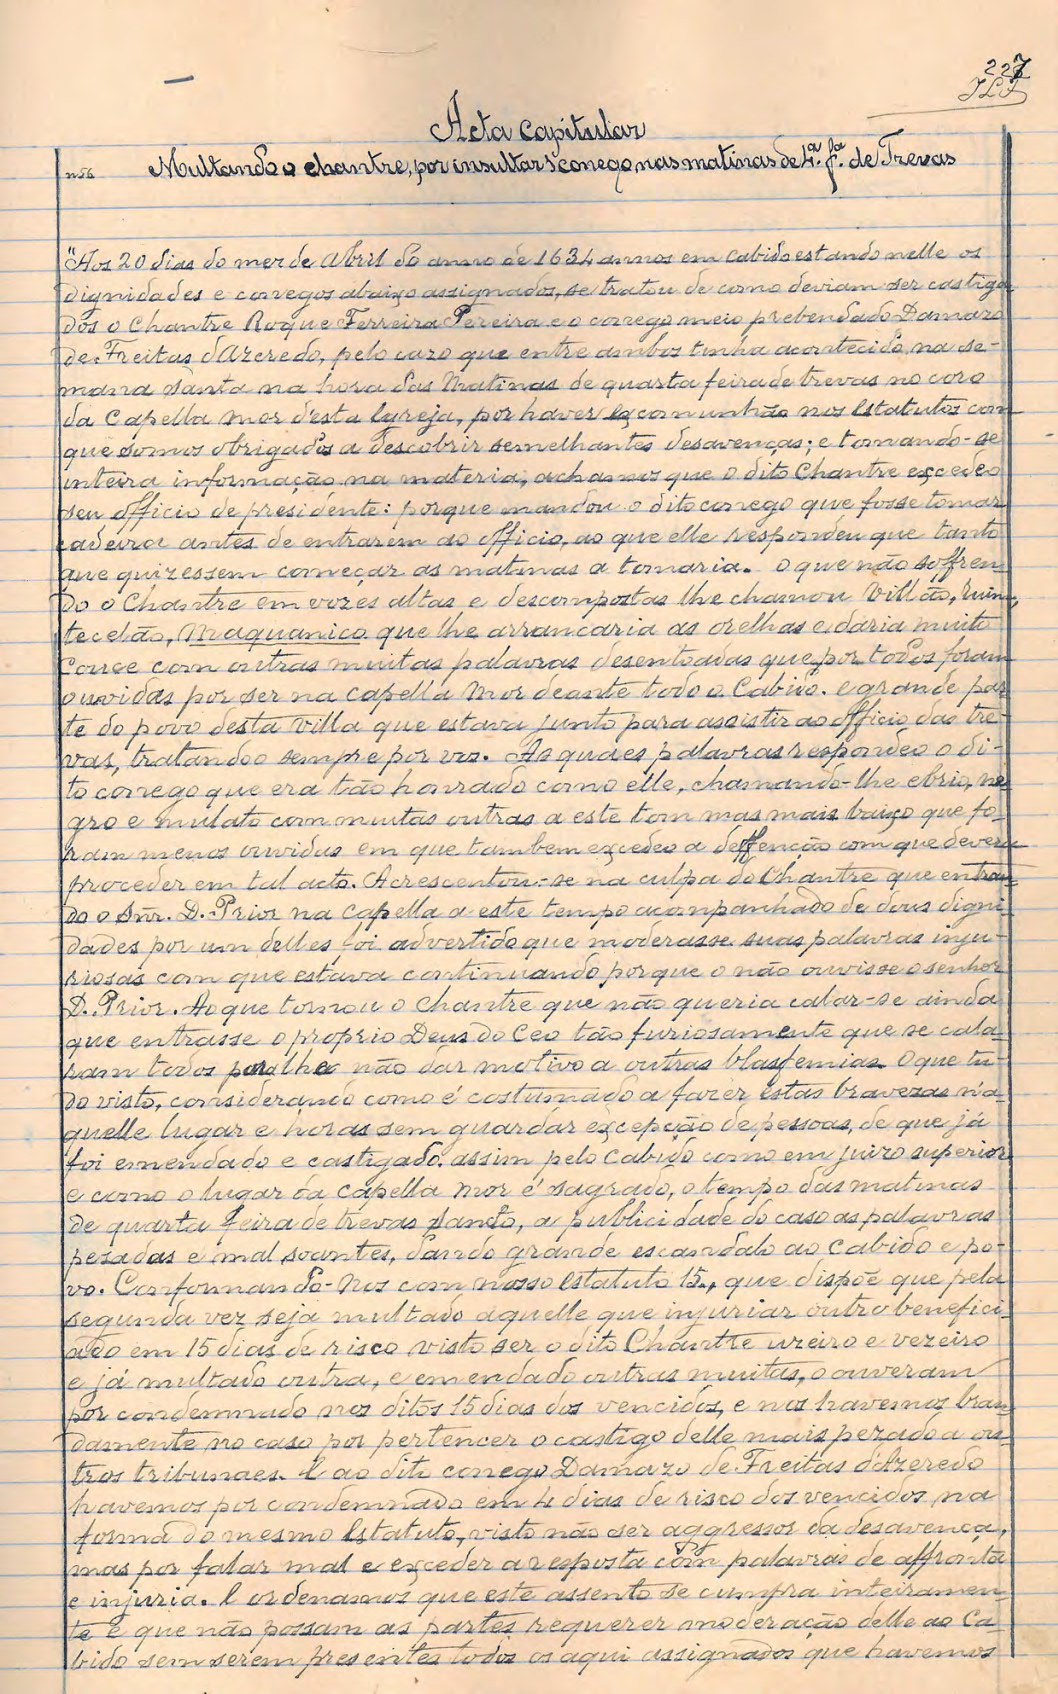 227
Acta Capitular
nº56 Multando o chantre, por insultar 1 conego, nas matinas de 4ª. fª. de Trevas
"Aos 20 dias do mez de Abril do anno de 1634 annos em Cabido estando nelle os
dignidades e conegos abaixo assignados, se tratou de como deviam ser castiga-
dos o Chantre Roque Ferreira Pereira e o conego meio prebendado Damazo
de Freitas d'Azeredo, pelo cazo que entre ambos tinha acontecido na se-
mana santa na hora das Matinas de quarta feira de trevas no coro
da Capella mor d'esta Igreja, por haver excomunhão nos Estatutos com
que somos obrigados a descobrir semelhantes desavenças; e tomando-se
inteira informação na materia, achamos que o dito Chantre excedeo
seu officio de presidente: porque mandou o dito conego que fosse tomar
cadeira antes de entrarem ao officio, ao que elle respondeu que tanto
que quizessem começar as matinas a tomaria. O que não soffren-
do o Chantre em vozes altas e descompostas lhe chamou Villão, Ruim,
tecelão, Maquanico que lhe arrancaria as orelhas e daria muito
couce com outras muitas palavras desentoadas que por todos foram
ouvidas por ser na capella Mor deante todo o Cabido. e grande par-
te do povo desta Villa que estava junto para assistir ao officio das tre-
vas, tratando o sempre por vos. As quaes palavras respondeo o di-
to conego que era tão honrado como elle, chamando-lhe ebrio, ne-
gro e mulato com muitas outras a este tom mas mais baixo que fo-
ram menos ouvidas em que tambem excedeo a deffenção com que devera
proceder em tal acto. Acrescentou-se na culpa do Chantre que entran-
do o Snr. D. Prior na capella a este tempo acompanhado de dous digni-
dades por um delles foi advertido que moderasse suas palavras inju-
riosas com que estava continuando porque o não ouvisse o senhor
D. Prior. Ao que tornou o Chantre que não queria calar-se ainda
que entrasse o proprio Deus do Ceo tão furiosamente que se cala-
ram todos por lhe não dar motivo a outras blasfemias. O que tu-
do visto, considerando como é costumado a fazer estas bravezas n'a-
quelle lugar e horas sem guardar excepção de pessoas, de que já
foi emendado e castigado, assim pelo Cabido como em juizo superior
e como o lugar da capella mor é sagrado, o tempo das matinas
de quarta feira de trevas santo, a publicidade do caso as palavras
pezadas e mal soantes, dando grande escandalo ao Cabido e po-
vo. Conformando-nos com nosso Estatuto 15., que dispõe que pela
segunda vez seja multado aquelle que injuriar outro benefici-
ado em 15 dias de risco visto ser o dito Chantre uzeiro e vezeiro
e já multado outra, e emendado outras muitas, o ouveram
por condemnado nos ditos 15 dias dos vencidos, e nos havemos bran-
damente no caso por pertencer o castigo delle mais pezado a ou-
tros tribunaes. E ao dito conego Damazo de Freitas d'Azeredo
havemos por condemnado em 4 dias de risco dos vencidos na
forma do mesmo Estatuto, visto não ser aggressor da desavença,
mas por falar mal e exceder a resposta com palavras de affronta
e injuria. E ordenamos que este assento se cumpra inteiramen-
te e que não possam as partes requerer moderação delle ao Ca-
bido sem serem presentes todos os aqui assignados que havemos